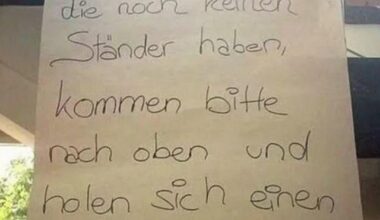 die noch keinen
Ständer haben,
kommen bitte
nach oben und
holen sich einen